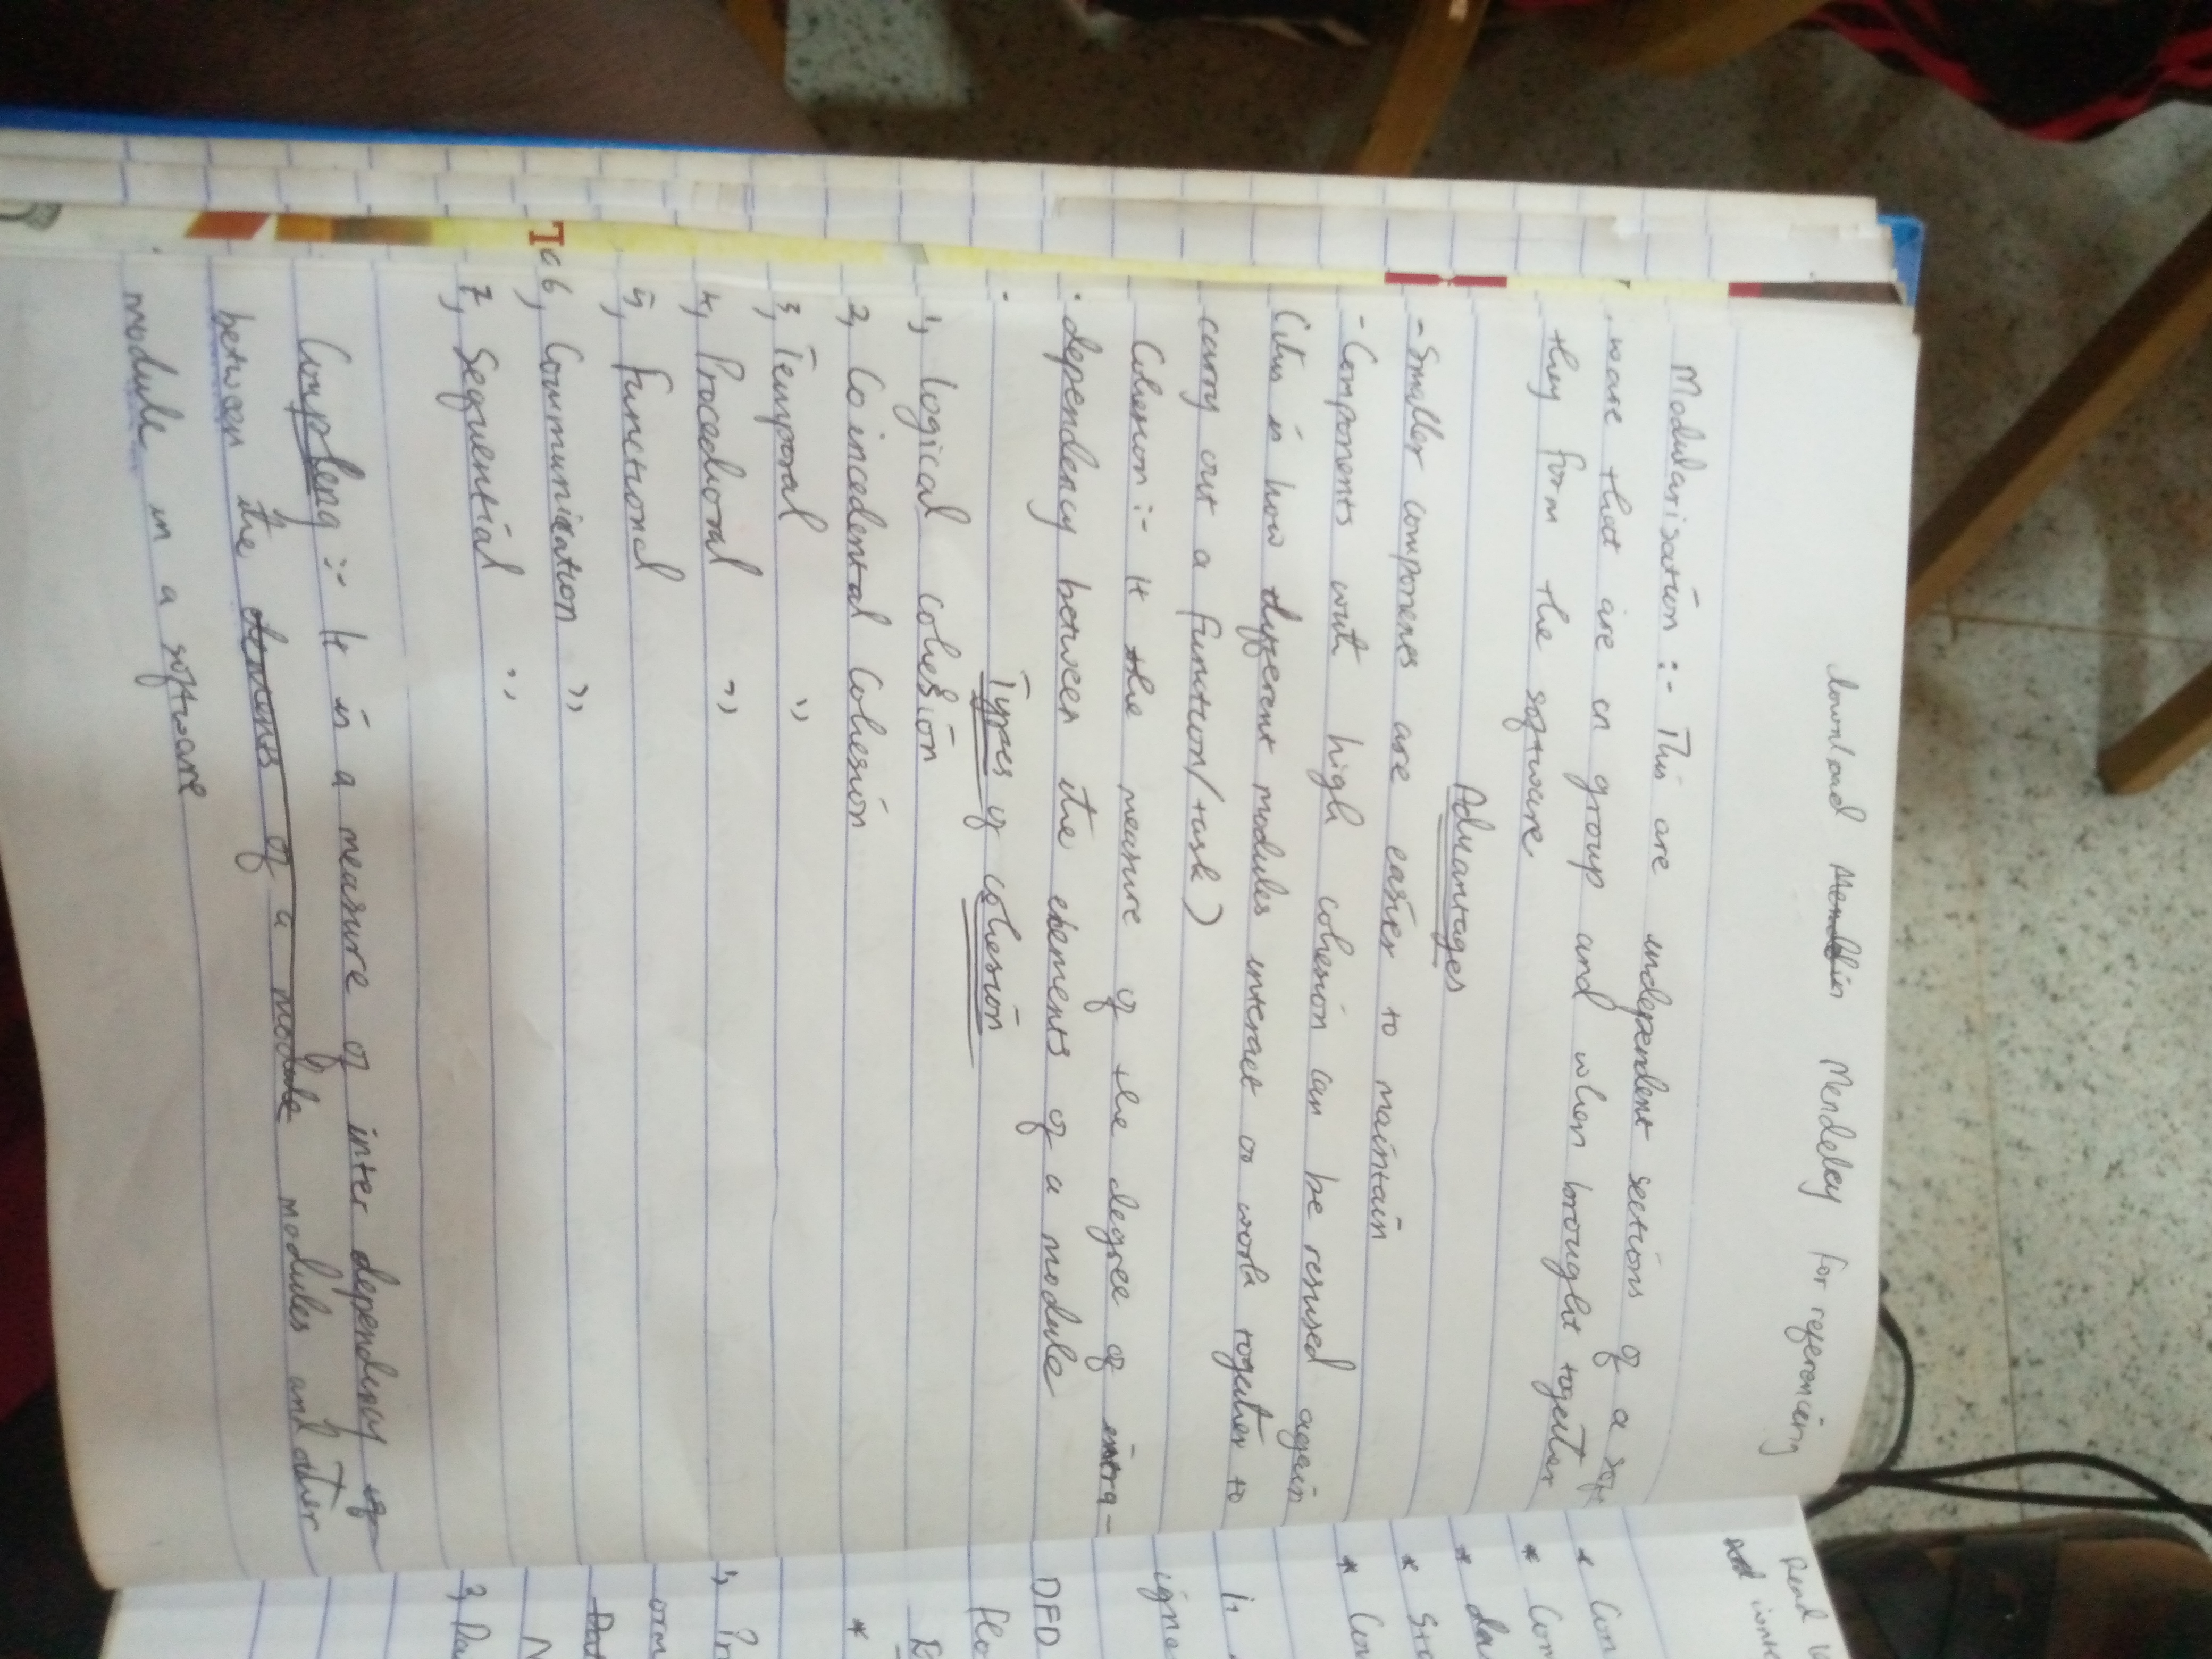 Download Mendeley for referencing
Modularisation :- This are independent sections of a soft
ware that are in group and when brought together
they form the software
Advantages
- Smaller components are easier to maintain
- Components wit high cohesion can be resused again
(this is how different modules interact or work together to
carry out a function/task)
Cohesion :- It the measure of the degree of intra-
dependency between the elements of a module
Types of cohesion
1, Logical cohesion
2, Co incedental Cohesion
3, Temporal ,,
4, Procedural ,,
5, functional
6, Communication ,,
7, Sequential ,,
Coupleng :- It is a measure of inter dependency of
between the elements of a module modules and other
module in a software
Read
* Con
* Com
* da
* Str
* Con
DFD
flo
*
1, Pr
2, Da